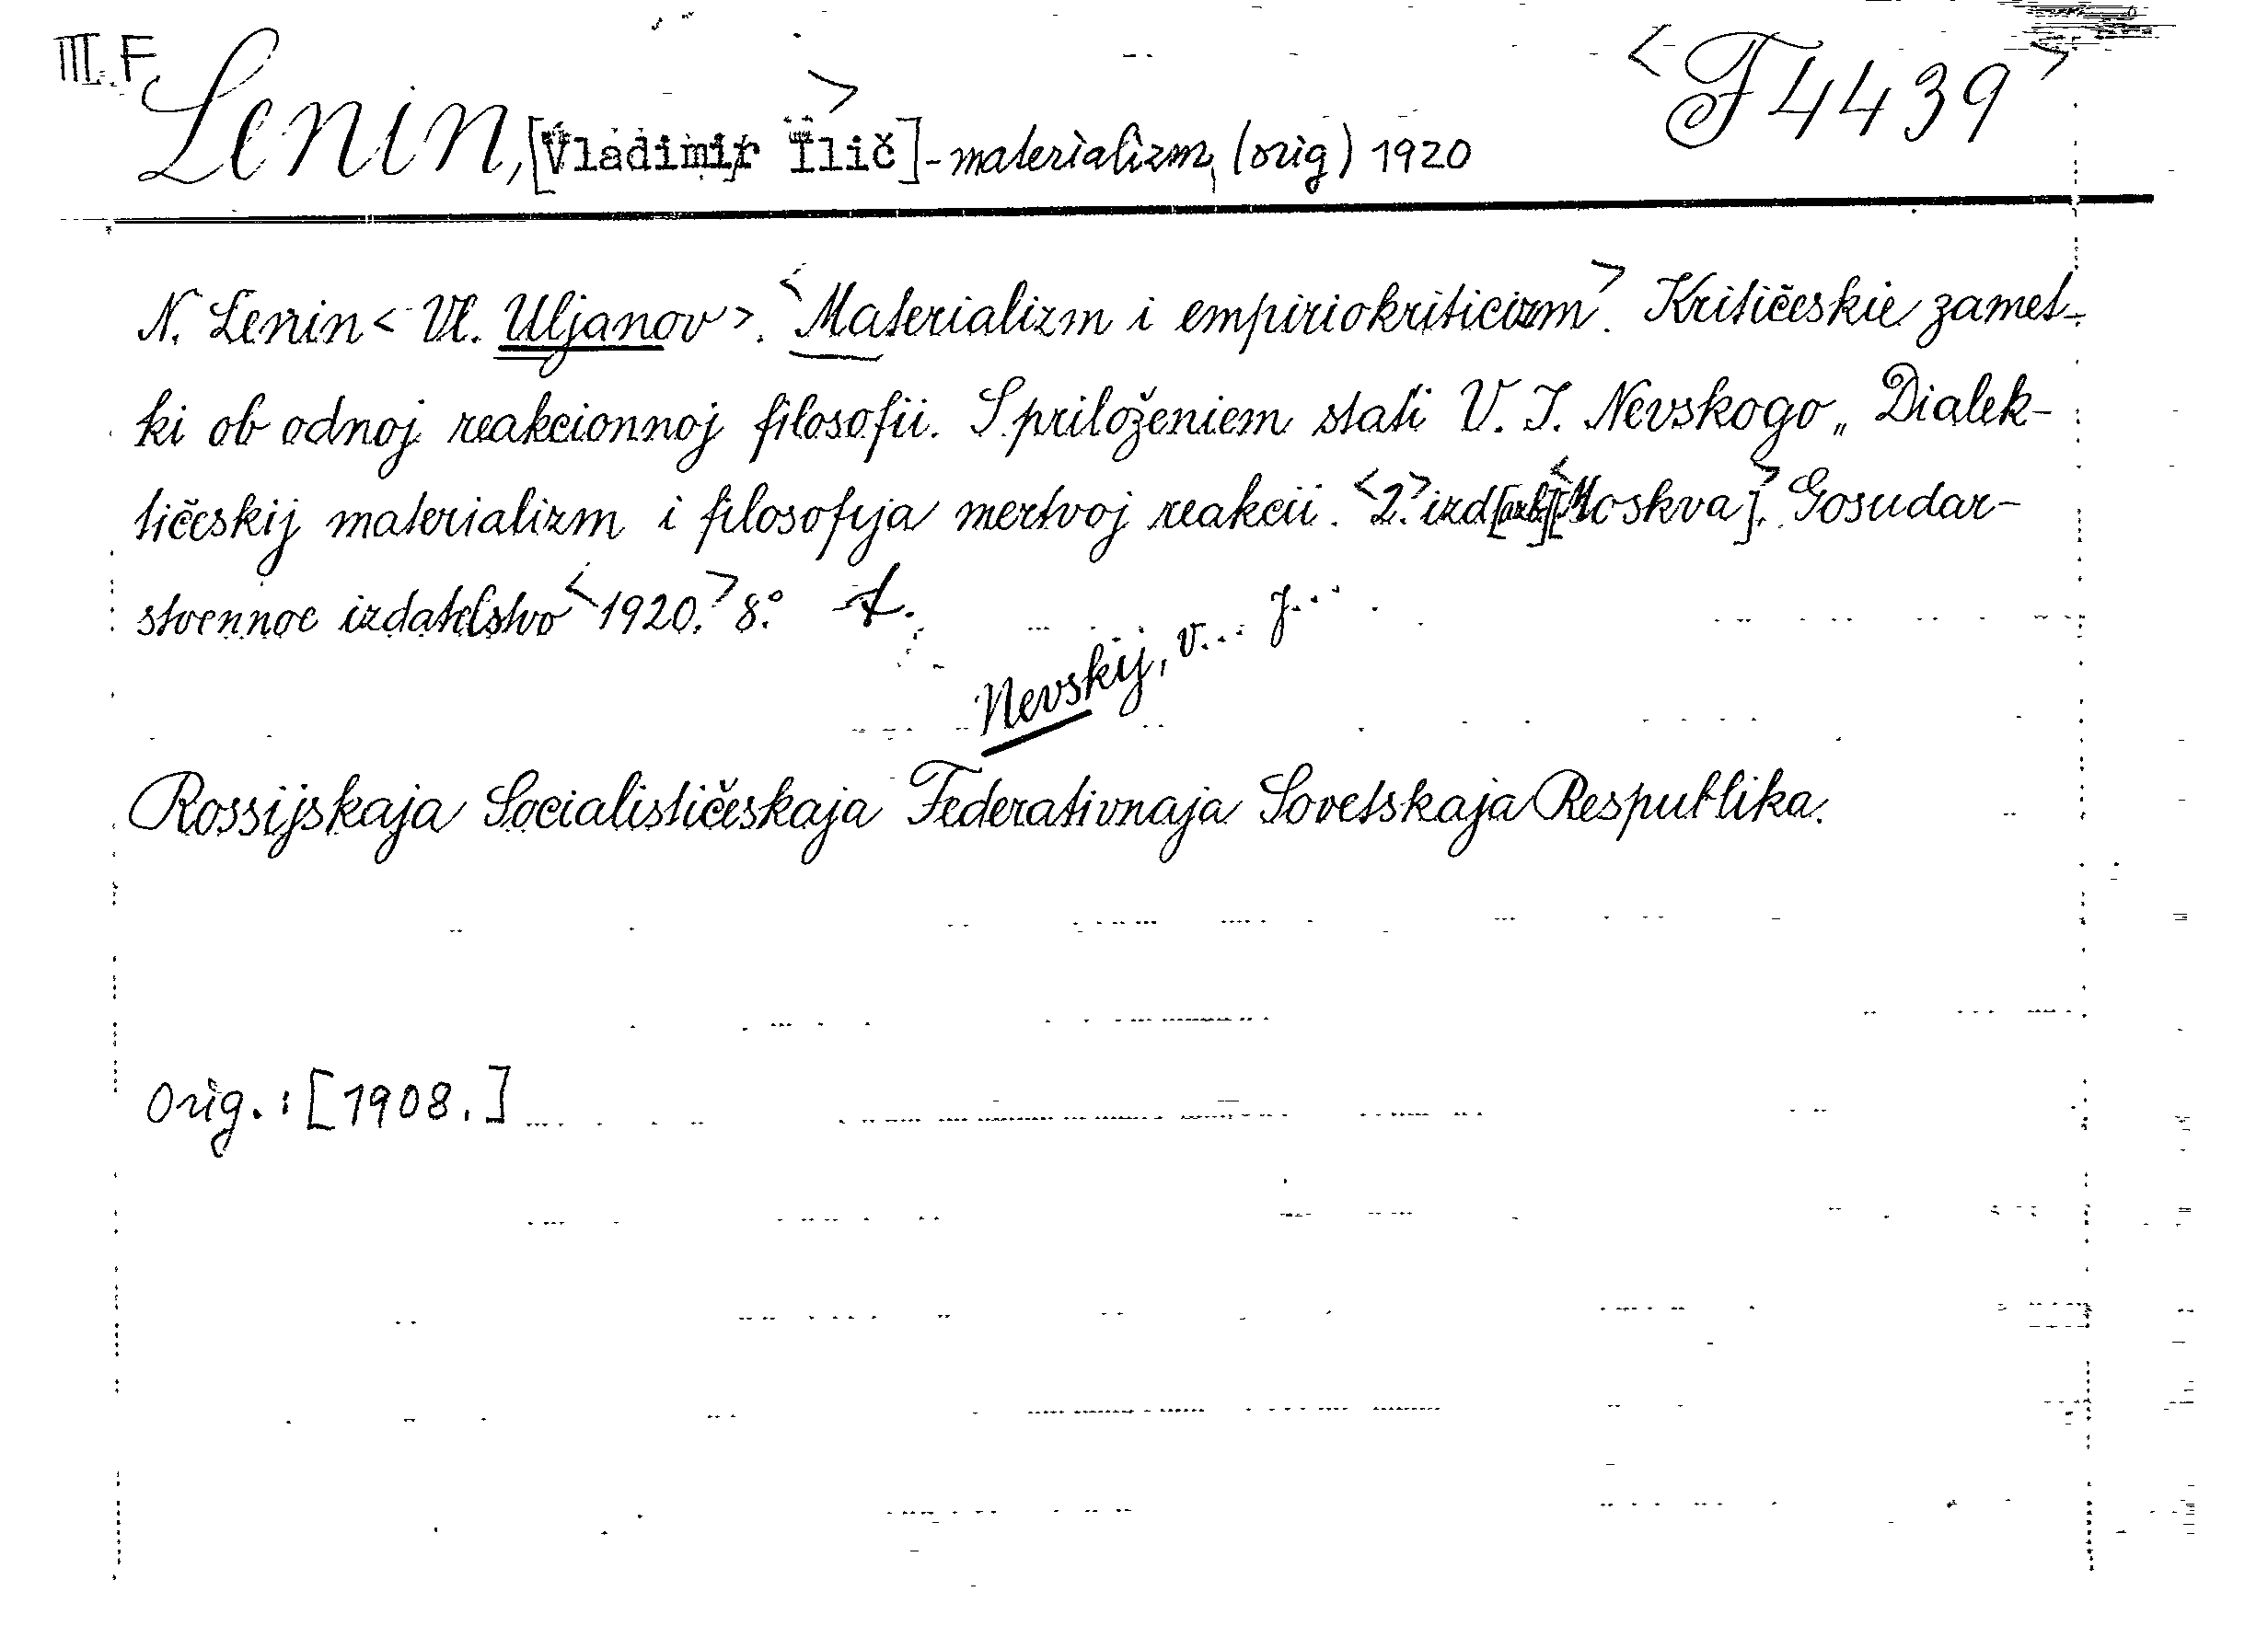 III. F <F 4439>
Lenin, [Vladimir Ilič>] - materializm, (orig) 1920
N. Lenin < Vl. Uljanov >. <Materializm i empiriokriticizm>. Kritičeskie zamet-
ki ob odnoj reakcionnoj filosofii. S priloženiem stati V. I. Nevskogo „ Dialek-
tičeskij materializm i filosofija mertvoj reakcii. <2.> izd <[Moskva]>. Gosudar-
stvennoe izdatelstvo <1920.> 8.°
Nevskij, V... J...
Rossijskaja Socialističeskaja Federativnaja Sovetskaja Respublika.
Orig. : [1908.]